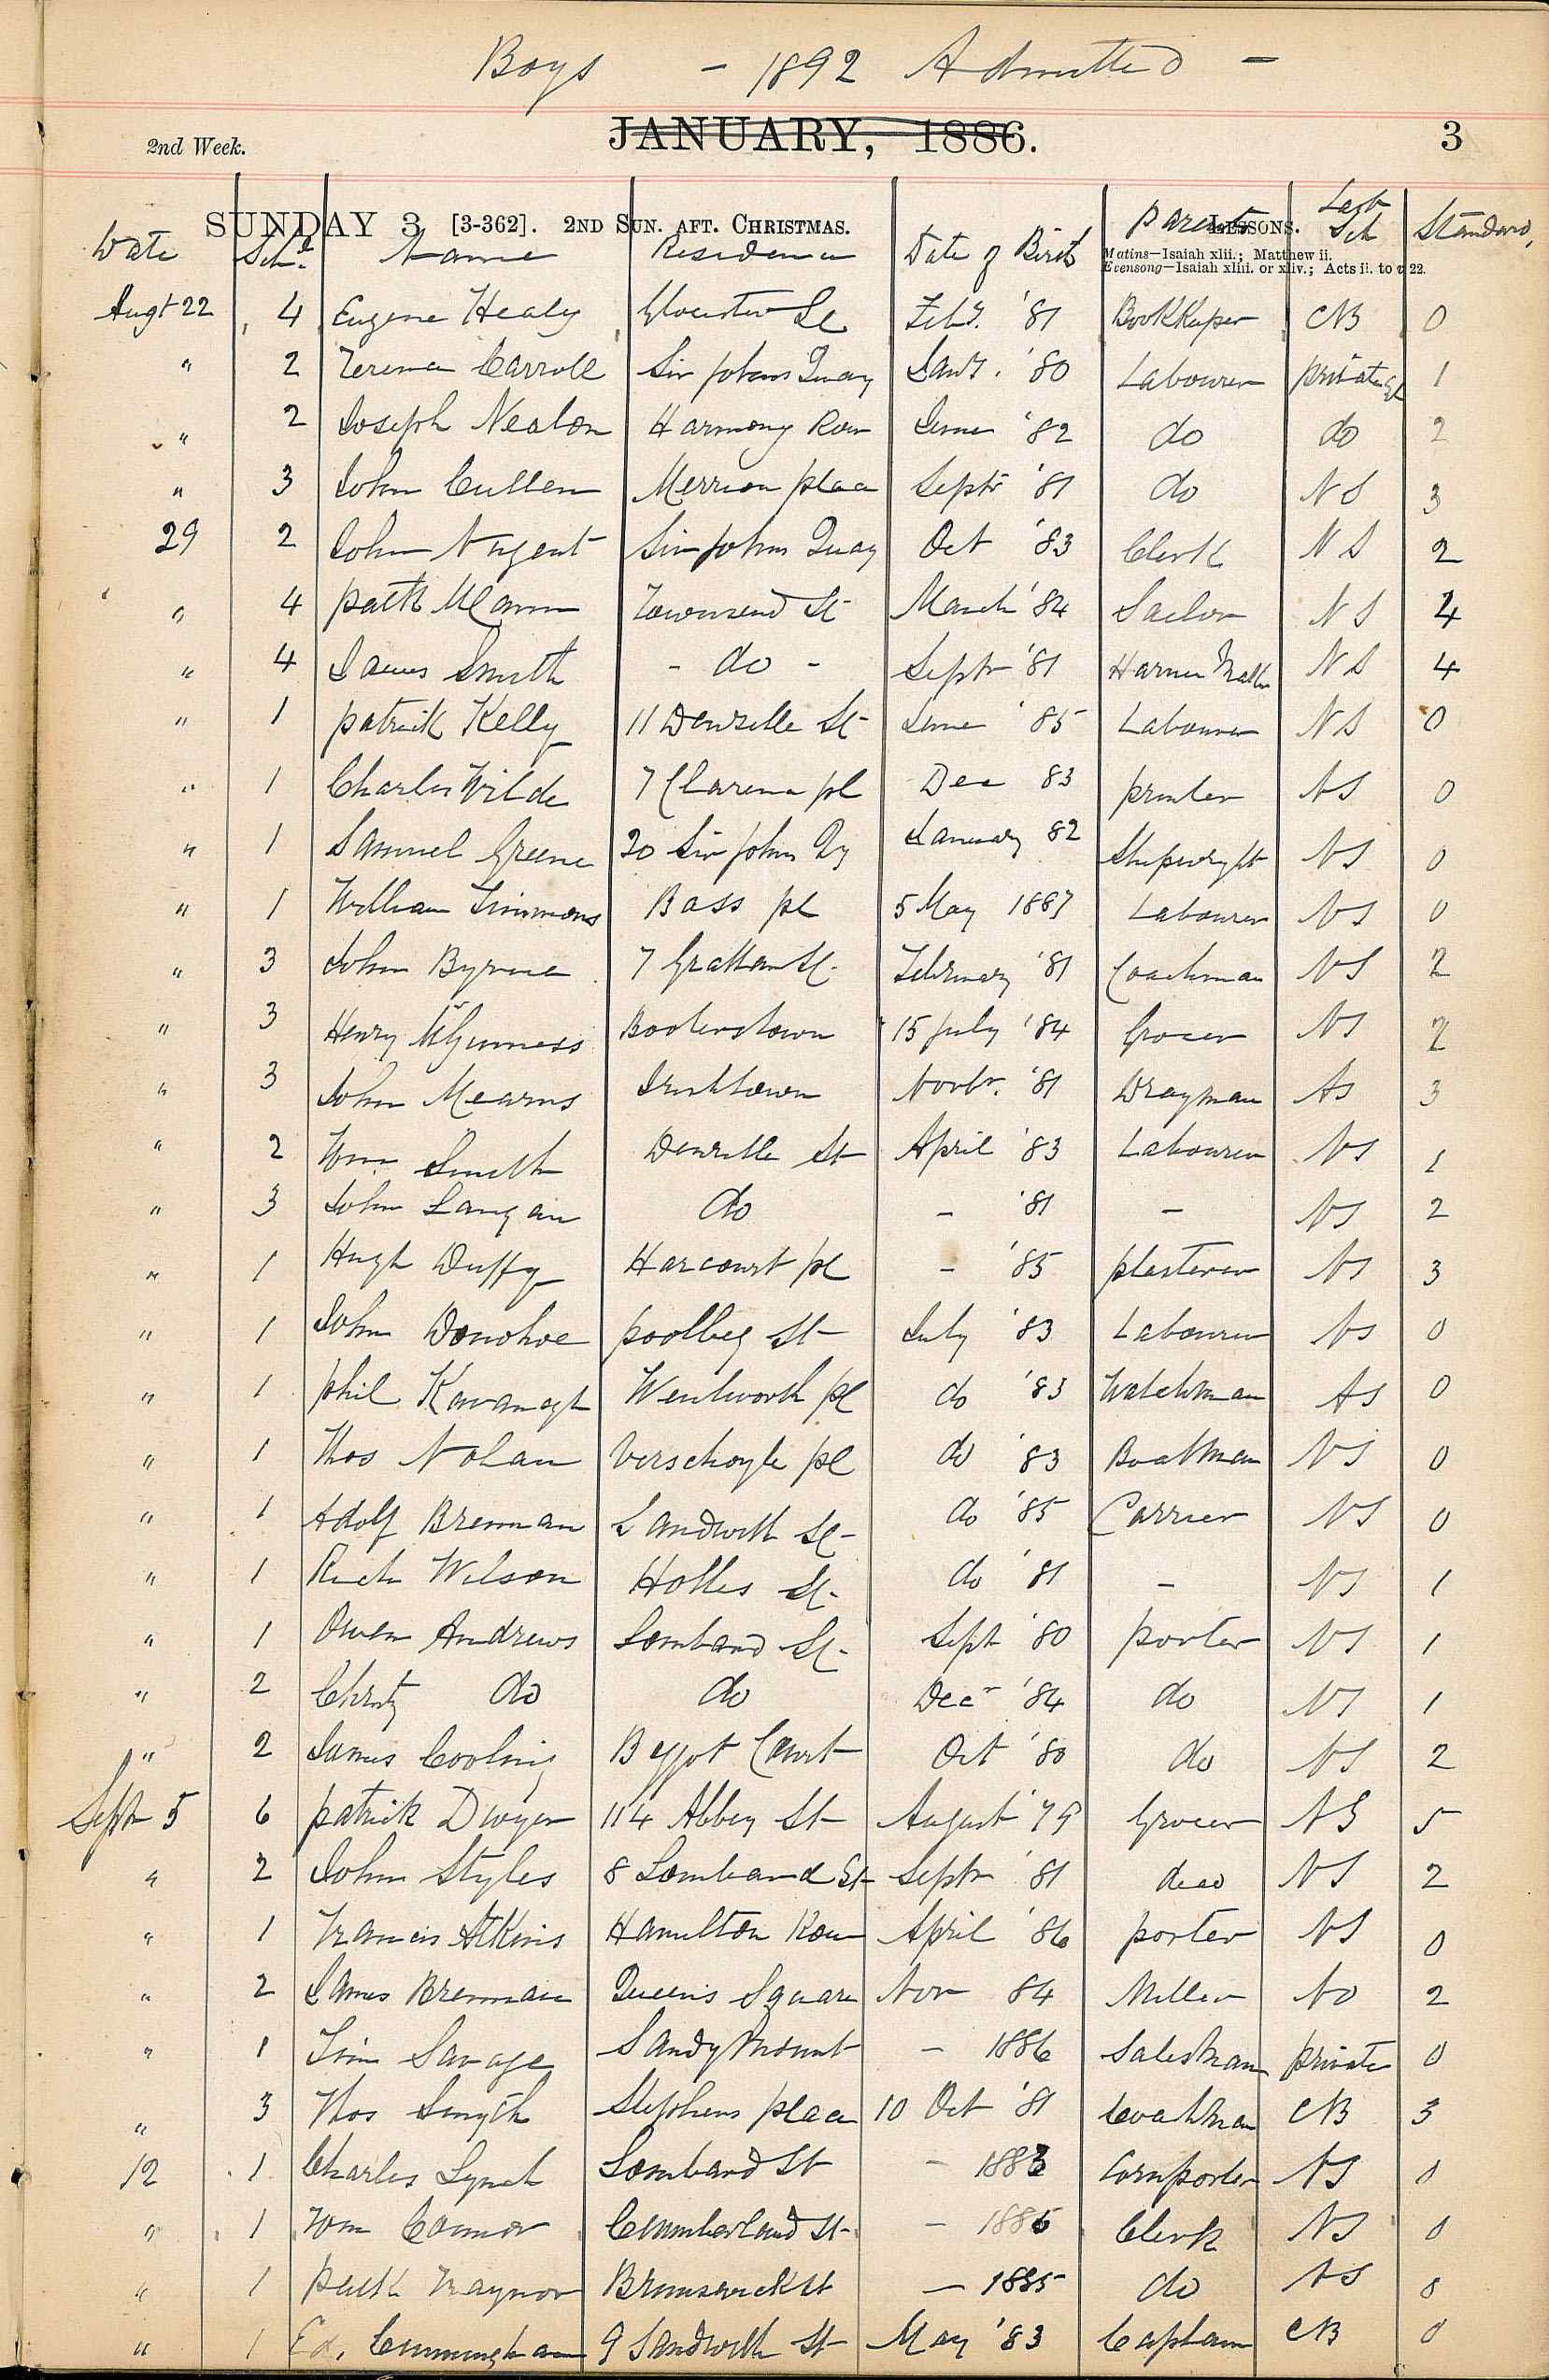 Boys - 1892 Admitted -
JANUARY, 1886.
2nd Week. 3
SUNDAY 3 [3-362]. 2ND SUN. AFT. CHRISTMAS. LESSONS.
Matins—Isaiah xlii.; Matthew ii.
Evensong—Isaiah xliii. or xliv.; Acts ii. to v 22.
Date Name Residence Date of Birth Parents Last Sch Standard
Augt 22 4 Eugene Healy Gloucester St Feby. '81 BookKeeper CNB 0
" 2 Terence Carroll Sir Johns Quay Jany. '80 Labourer private 1
" 2 Joseph Nealon Harmony Row June '82 do do 2
" 3 John Cullen Merrion place Septr '81 do NS 3
29 2 John Nugent Sir Johns Quay Oct '83 Clerk NS 2
" 4 Patk McCann Townsend St March '84 Sailor NS 4
" 4 James Smith - do - Septr '81 Harness Maker NS 4
" 1 Patrick Kelly 11 Denzille St June '85 Labourer NS 0
" 1 Charles Wilde 7 Clarence pl Dec 83 printer NS 0
" 1 Samuel Greene 20 Sir John Qy January 82 Shipwright NS 0
" 1 William Timmons Bass pl 5 May 1887 Labourer NS 0
" 3 John Byrne 7 Grattan St. February '81 Coachman NS 2
" 3 Henry McGuinness Booterstown 15 July '84 Grocer NS 2
" 3 John Mearns Irishtown Novbr. '81 Drayman NS 3
" 2 Wm Smith Denzille St April '83 Labourer NS 1
" 3 John Langan do - '81 - NS 2
" 1 Hugh Duffy Harcourt pl - '85 plasterer NS 3
" 1 John Donohoe poolbeg St July '83 Labourer NS 0
" 1 Phil Kavanagh Wentworth pl do '83 Watchman NS 0
" 1 Thos Nolan Verschoyle pl do '83 Boatman NS 0
" 1 Adolf Brennan Sandwith St - do '85 Carrier NS 0
" 1 Rich Wilson Holles St. do '81 - NS 1
" 1 Owen Andrews Lombard St - Sept '80 porter NS 1
" 2 Christy do do Decr '84 do NS 1
" 2 James Cooling Court Oct '80 do NS 2
Septr 5 6 Patrick Dwyer 114 Abbey St August '79 Grocer NS 5
" 2 John Styles 8 Lombard St Septr '81 dead NS 2
" 1 Francis Atkins Hamilton Row April '86 porter NS 0
" 2 James Brennan Queens Square Nov 84 Miller NS 2
" 1 Tim Savage Sandymount - 1886 Salesman private 0
" 3 Thos Smyth Stephens place 10 Oct '81 Coachman CNB 3
12 1 Charles Lynch Lombard St - 1883 Cornporter NS 0
" 1 Wm Connor Cumberland St. - 1885 Clerk NS 0
" 1 Patk Traynor Brunswick St - 1885 do NS 0
" 1 Ed. Cunningham 9 Sandwith St May '83 Captain CNB 0